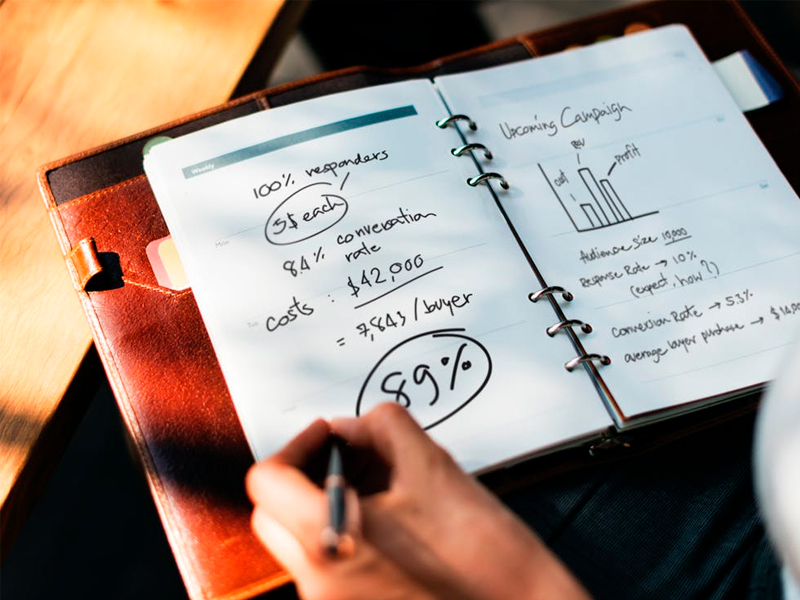 Weekly
100% responders
5$ each
8.4% conversation
rate
costs : $42,000
= 7,843/buyer
89%
Upcoming Campaign
cost
profit
Audience size 10,000
Response Rate → 10%
(expect, how?)
Conversion Rate → 5.3%
average buyer purchase →